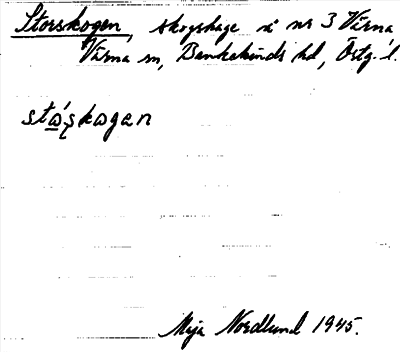 Storskogen, skogshage å nr 3 Värna
Värna sn, Bankekinds hd, Östg. l.
stώ̱ʂkωgεn
Maja Nordlund 1945.